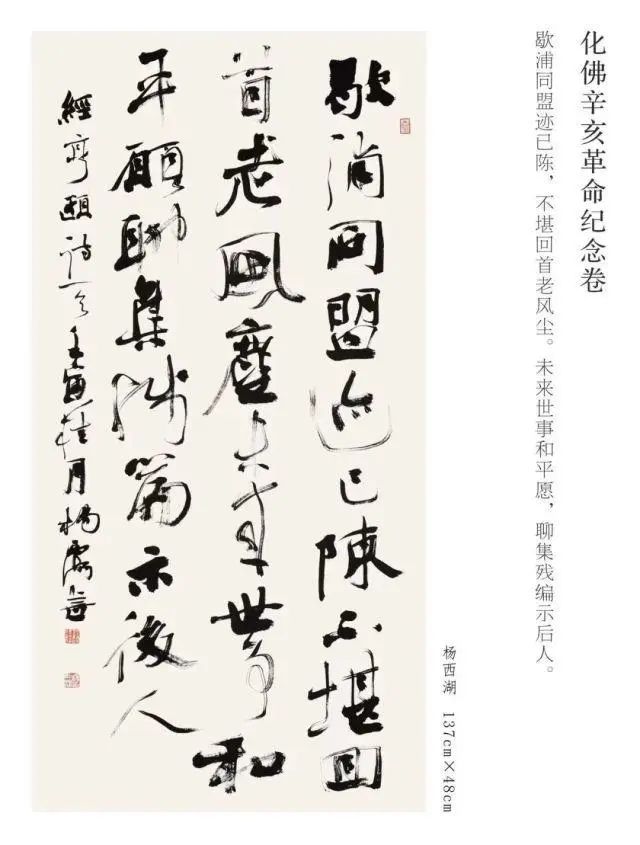 化佛辛亥革命纪念卷
歇浦同盟迹已陈，不堪回首老风尘。未来世事和平愿，聊集残编示后人。
杨西湖 137cm×48cm
歇浦同盟迹已陳不堪回
首老風塵未來世事和
平願聊集殘篇示後人
經亨頤詩一首壬寅桂月楊